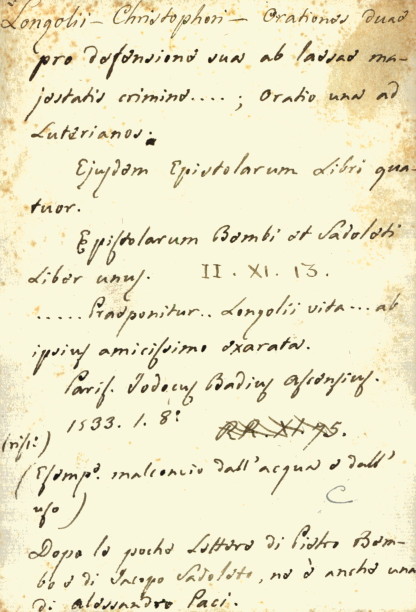 Longolii - Christophori - Orationes duae
pro defensione sua ab laesae ma-
jestatis crimine....; Oratio una ad
Luterianos.
Ejusdem Epistolarum Libri qua-
tuor.
Epistolarum Bembi et Sadoleti
Liber unus. II. XI. 13.
..... Praeponitur.. Longolii vita... ab
ipsius amicissimo exarata.
Paris. Jodocus Badius Ascensius.
1533. 1. 8°
RR. XI. 95.
(Esemp. malconcio dall'acqua e dall'
uso)
C
Dopo le poche Lettere di Pietro Bem-
bo e di Jacopo Sadoleto, ne è anche una
di Alessandro Paci.